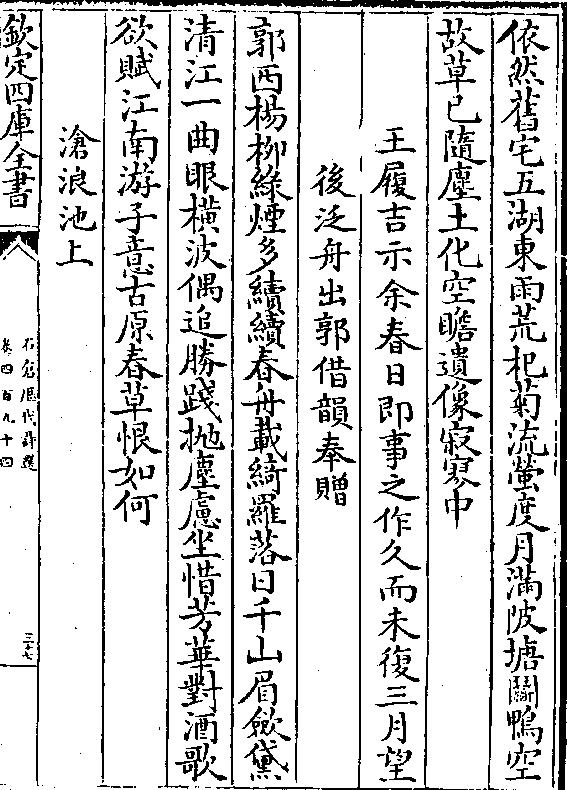 依然舊宅五湖東雨荒杞菊流螢度月滿陂塘鬭鴨空
故草已隨塵土化空瞻遺像寂寥中
王履吉示余春日即事之作久而未復三月望
後泛舟出郭借韻奉贈
郭西楊柳綠煙多續續春舟載綺羅落日千山眉斂黛
清江一曲眼橫波偶追勝踐拋塵慮坐惜芳華對酒歌
欲賦江南游子意古原春草恨如何
滄浪池上
欽定四庫全書
石倉歷代詩選
卷四百九十四
三十七